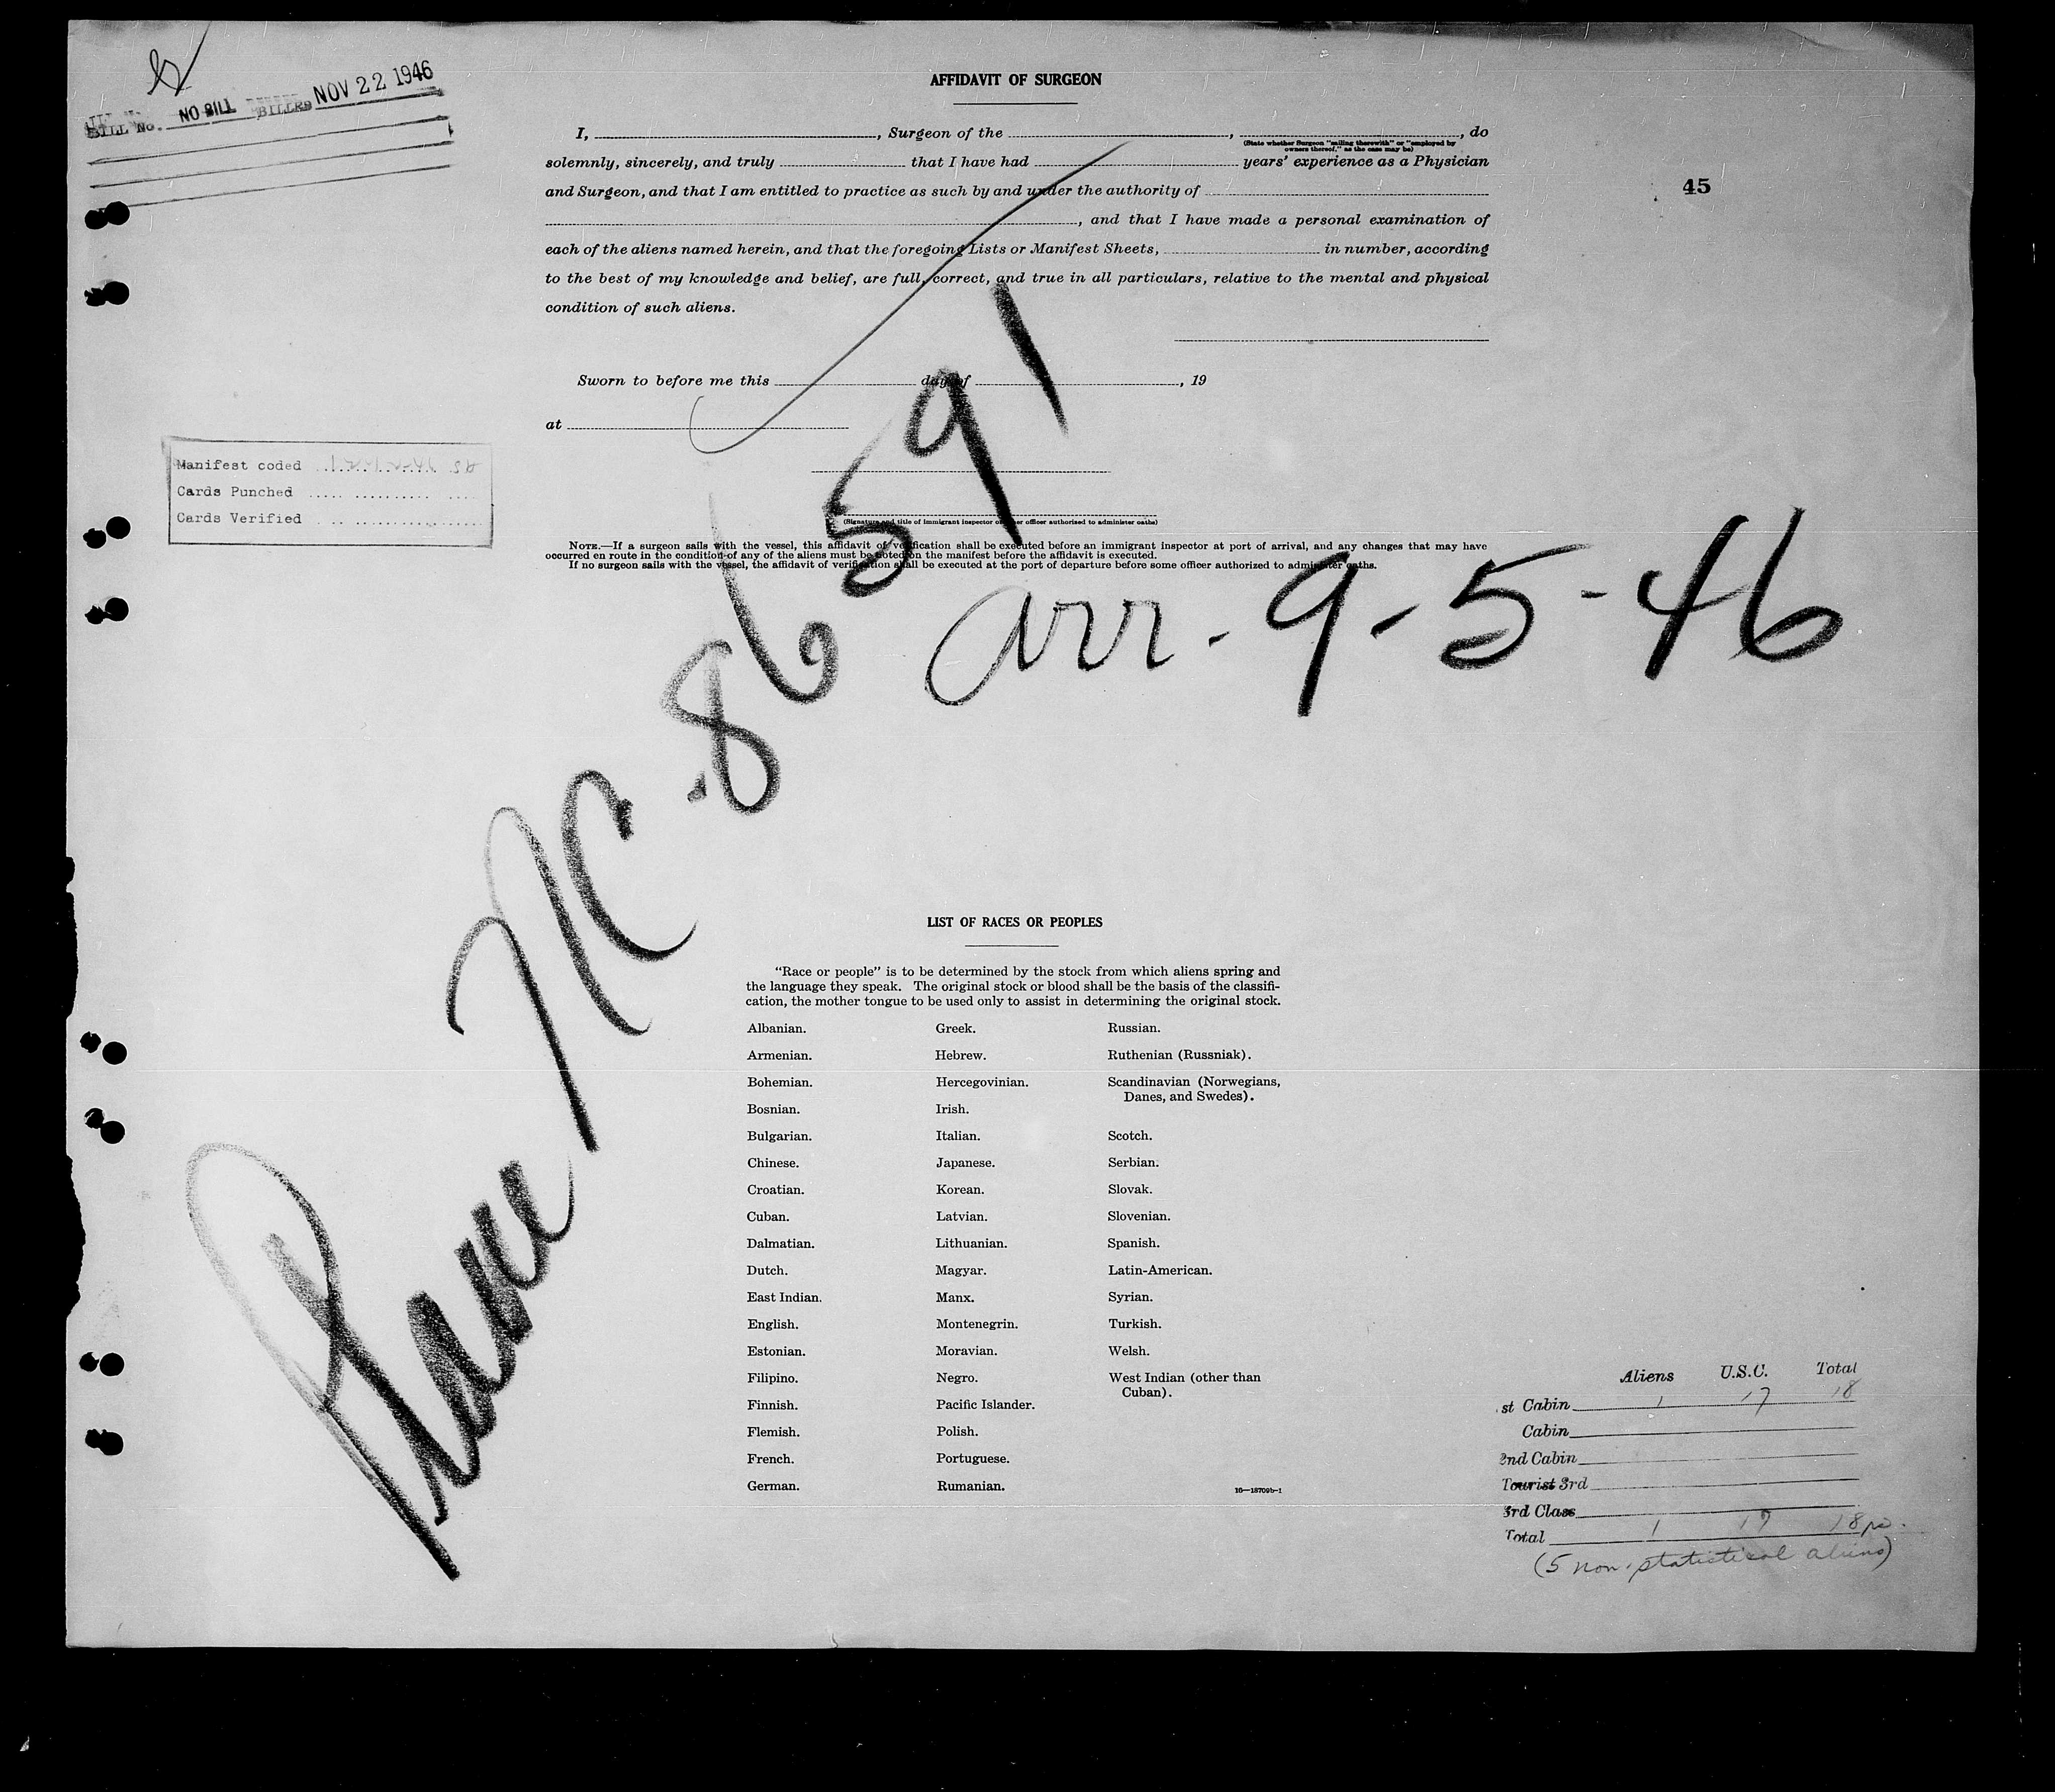 BILL No. NO BILL BILLED NOV 22 1946
AFFIDAVIT OF SURGEON
I, , Surgeon of the , , do
(State whether Surgeon "sailing therewith" or "employed by
owners thereof," as the case may be)
solemnly, sincerely, and truly that I have had years' experience as a Physician
and Surgeon, and that I am entitled to practice as such by and under the authority of
, and that I have made a personal examination of
each of the aliens named herein, and that the foregoing Lists or Manifest Sheets, in number, according
to the best of my knowledge and belief, are full, correct, and true in all particulars, relative to the mental and physical
condition of such aliens.
45
Sworn to before me this day of , 19
at
Manifest coded
Cards Punched
Cards Verified
(Signature and title of immigrant inspector or other officer authorized to administer oaths)
NOTE.—If a surgeon sails with the vessel, this affidavit of verification shall be executed before an immigrant inspector at port of arrival, and any changes that may have
occurred en route in the condition of any of the aliens must be noted on the manifest before the affidavit is executed.
If no surgeon sails with the vessel, the affidavit of verification shall be executed at the port of departure before some officer authorized to administer oaths.
Plane NC.86591
arr-9-5-46
LIST OF RACES OR PEOPLES
"Race or people" is to be determined by the stock from which aliens spring and
the language they speak. The original stock or blood shall be the basis of the classifi-
cation, the mother tongue to be used only to assist in determining the original stock.
Albanian.
Armenian.
Bohemian.
Bosnian.
Bulgarian.
Chinese.
Croatian.
Cuban.
Dalmatian.
Dutch.
East Indian.
English.
Estonian.
Filipino.
Finnish.
Flemish.
French.
German.
Greek.
Hebrew.
Hercegovinian.
Irish.
Italian.
Japanese.
Korean.
Latvian.
Lithuanian.
Magyar.
Manx.
Montenegrin.
Moravian.
Negro.
Pacific Islander.
Polish.
Portuguese.
Rumanian.
Russian.
Ruthenian (Russniak).
Scandinavian (Norwegians,
Danes, and Swedes).
Scotch.
Serbian.
Slovak.
Slovenian.
Spanish.
Latin-American.
Syrian.
Turkish.
Welsh.
West Indian (other than
Cuban).
16—18709b-1
Aliens U.S.C. Total
st Cabin 1 17 18
Cabin
2nd Cabin
Tourist 3rd
3rd Class
Total 1 17 18
(5 non-statistical aliens)